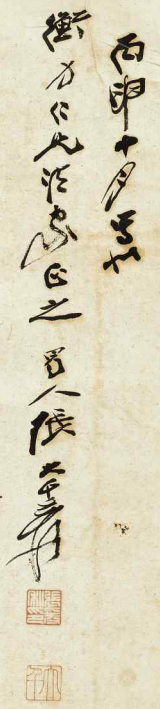 丙申十月寫似
衡方仁兄法家正之 蜀人張大千爰